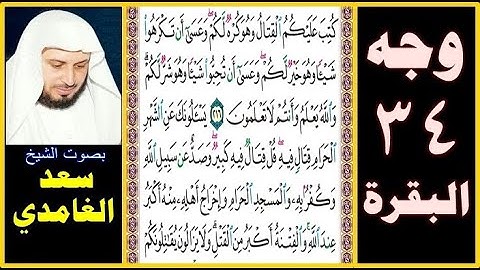 وجه
٣٤
البقرة
كُتِبَ عَلَيْكُمُ الْقِتَالُ وَهُوَ كُرْهٌ لَّكُمْ وَعَسَىٰ أَن تَكْرَهُوا
شَيْئًا وَهُوَ خَيْرٌ لَّكُمْ وَعَسَىٰ أَن تُحِبُّوا شَيْئًا وَهُوَ شَرٌّ لَّكُمْ
وَاللَّهُ يَعْلَمُ وَأَنتُمْ لَا تَعْلَمُونَ ٢١٦ يَسْأَلُونَكَ عَنِ الشَّهْرِ
الْحَرَامِ قِتَالٍ فِيهِ قُلْ قِتَالٌ فِيهِ كَبِيرٌ وَصَدٌّ عَن سَبِيلِ اللَّهِ
وَكُفْرٌ بِهِ وَالْمَسْجِدِ الْحَرَامِ وَإِخْرَاجُ أَهْلِهِ مِنْهُ أَكْبَرُ
عِندَ اللَّهِ وَالْفِتْنَةُ أَكْبَرُ مِنَ الْقَتْلِ وَلَا يَزَالُونَ يُقَاتِلُونَكُمْ
بصوت الشيخ
سعد
الغامدي